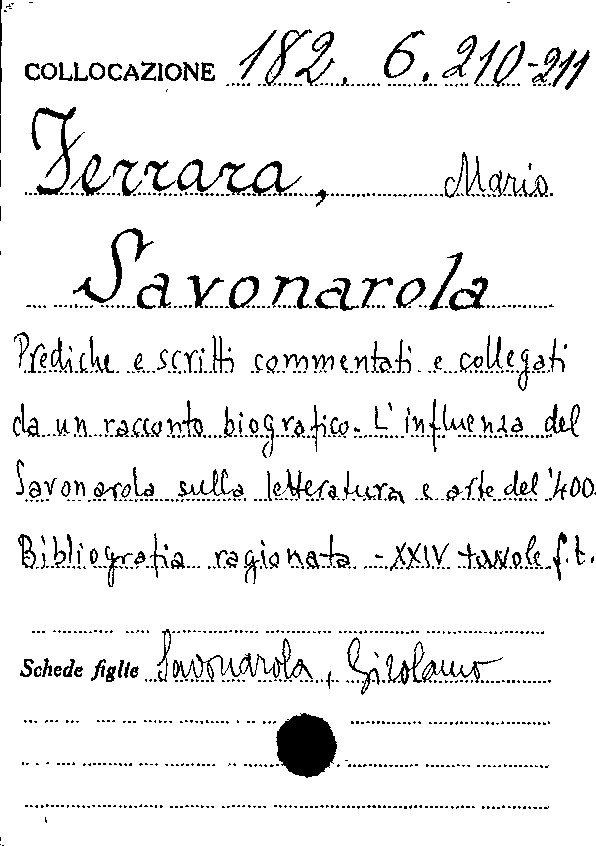 COLLOCAZIONE 182. 6. 210-211
Ferrara, Mario
Savonarola
Prediche e scritti commentati e collegati
da un racconto biografico. L'influenza del
Savonarola sulla letteratura e arte del '400.
Bibliografia ragionata - XXIV tavole f.t.
Schede figlie Savonarola, Girolamo